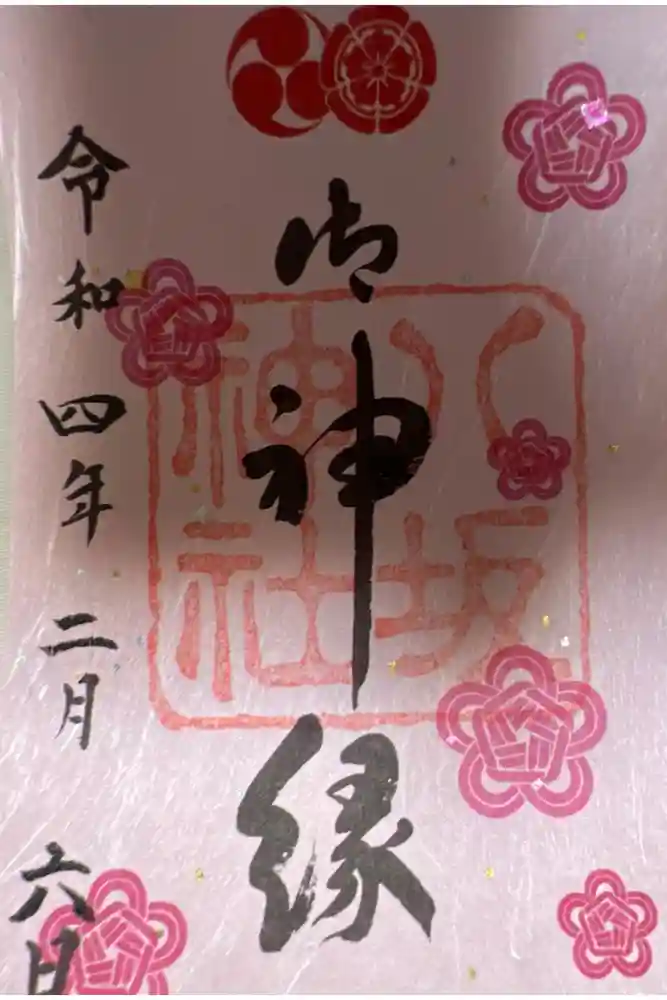 御神縁
八坂
神社
令和四年二月六日